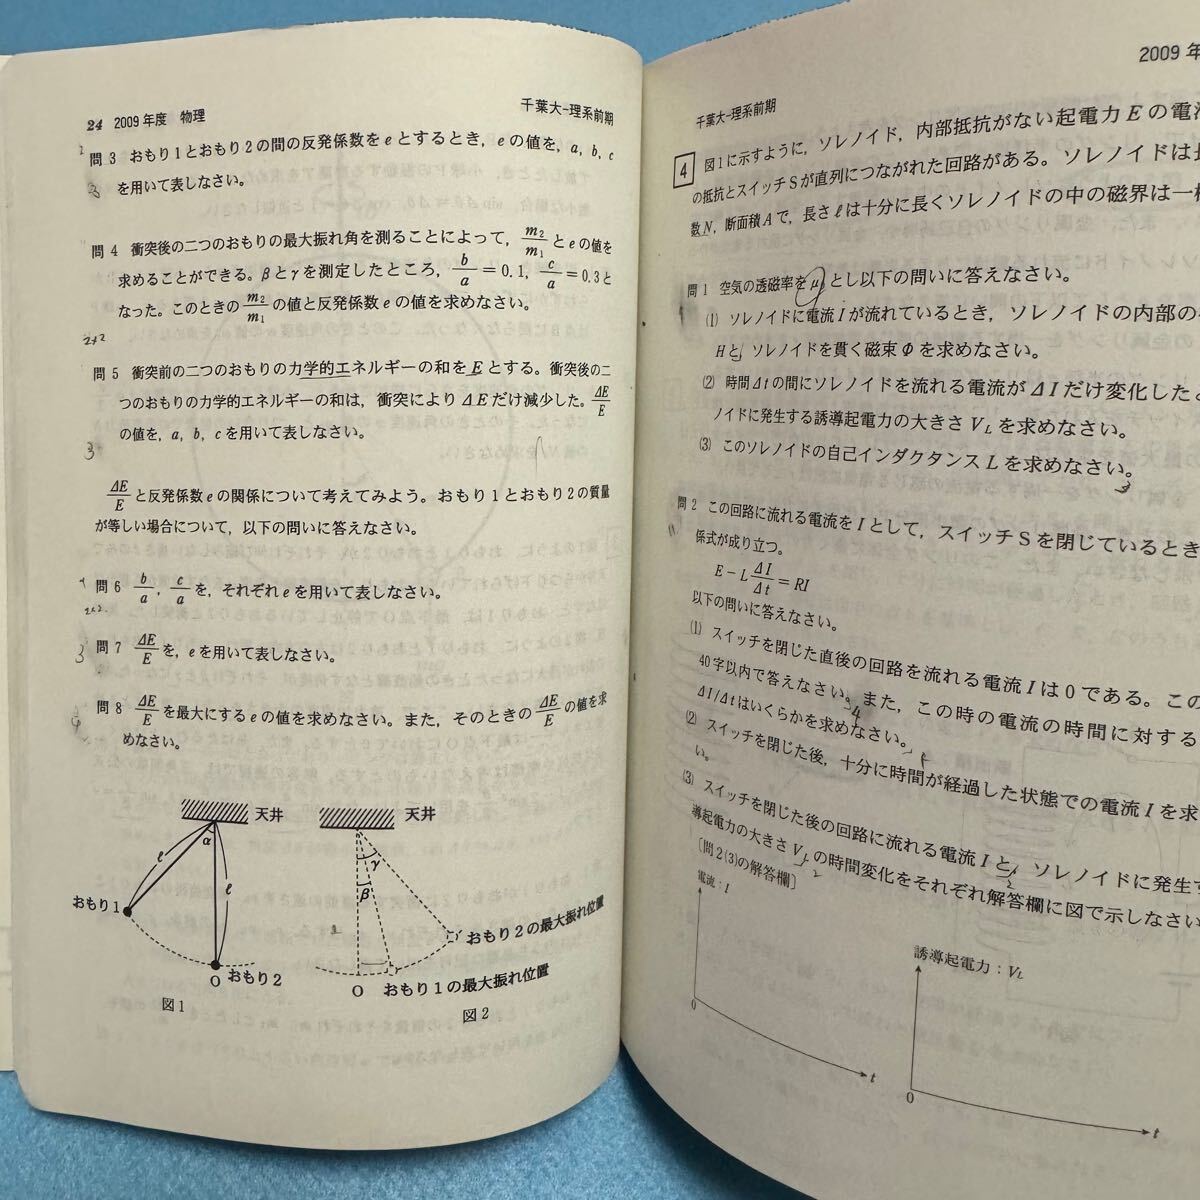 24 2009年度 物理
千葉大-理系前期
問3 おもり1とおもり2の間の反発係数をeとするとき，eの値を，a，b，c
を用いて表しなさい。
問4 衝突後の二つのおもりの最大振れ角を測ることによって，m₂/m₁とeの値を
求めることができる。βとγを測定したところ，b/a＝0.1，c/a＝0.3と
なった。このときのm₂/m₁の値と反発係数eの値を求めなさい。
2+2
問5 衝突前の二つのおもりの力学的エネルギーの和をEとする。衝突後の二
つのおもりの力学的エネルギーの和は，衝突によりΔEだけ減少した。ΔE/E
の値を，a，b，cを用いて表しなさい。
3
ΔE/Eと反発係数eの関係について考えてみよう。おもり1とおもり2の質量
が等しい場合について，以下の問いに答えなさい。
問6 b/a，c/aを，それぞれeを用いて表しなさい。
2×2.
問7 ΔE/Eを，eを用いて表しなさい。
3
問8 ΔE/Eを最大にするeの値を求めなさい。また，そのときのΔE/Eの値を求
めなさい。
天井
α
ℓ
ℓ
おもり1
O おもり2
図1
天井
γ
β
おもり2の最大振れ位置
O おもり1の最大振れ位置
図2
2009年
千葉大-理系前期
4 図1に示すように，ソレノイド，内部抵抗がない起電力Eの電
の抵抗とスイッチSが直列につながれた回路がある。ソレノイドは
数N，断面積Aで，長さℓは十分に長くソレノイドの中の磁界は一
問1 空気の透磁率をμとし以下の問いに答えなさい。
(1) ソレノイドに電流Iが流れているとき，ソレノイドの内部の
Hと，ソレノイドを貫く磁束Φを求めなさい。
(2) 時間Δtの間にソレノイドを流れる電流がΔIだけ変化した
ノイドに発生する誘導起電力の大きさV_Lを求めなさい。
(3) このソレノイドの自己インダクタンスLを求めなさい。
3
問2 この回路に流れる電流をIとして，スイッチSを閉じているとき
係式が成り立つ。
E－LΔI/Δt＝RI
以下の問いに答えなさい。
(1) スイッチを閉じた直後の回路を流れる電流Iは0である。この
40字以内で答えなさい。また，この時の電流の時間に対する
4
ΔI/Δtはいくらかを求めなさい。
(2) スイッチを閉じた後，十分に時間が経過した状態での電流Iを求
い。
(3) スイッチを閉じた後の回路に流れる電流Iと，ソレノイドに発生
2
導起電力の大きさV_Lの時間変化をそれぞれ解答欄に図で示しなさい
2
〔問2(3)の解答欄〕
電流：I
0
t
誘導起電力：V_L
0
t